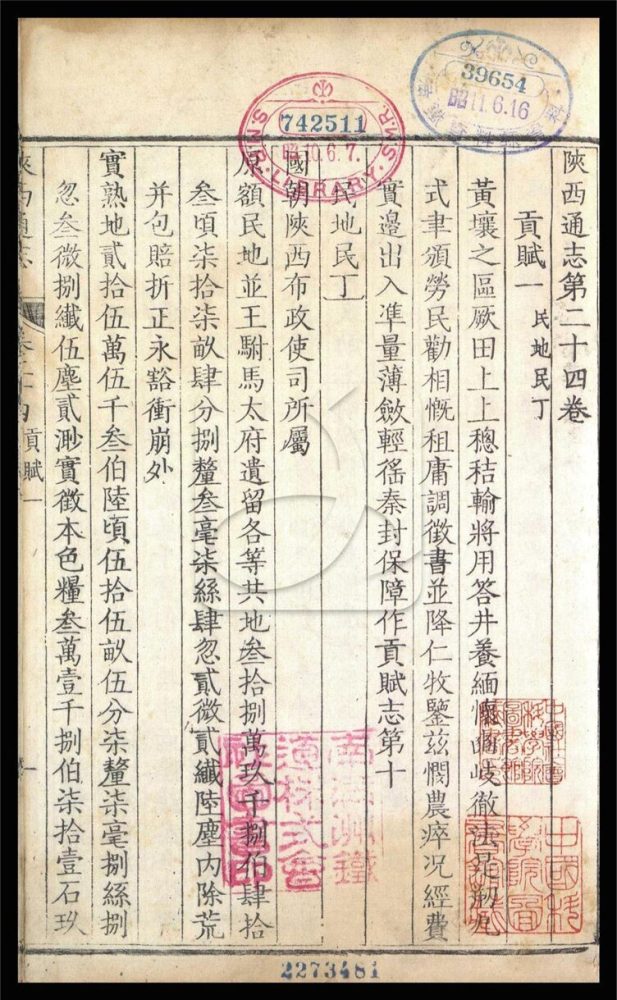 陝西通志第二十四卷
貢賦一 民地民丁
黃壤之區厥田上上緫秸輸將用答井養緬懷豳岐徹法是
式聿頒勞民勸相慨租庸調徵書並降仁牧鑒茲憫農瘁况經費
實邊出入凖量薄斂輕徭秦封保障作貢賦志第十
民地民丁
國朝陝西布政使司所屬
原額民地並王駙馬太府遺留各等共地叁拾捌萬玖千捌伯肆拾
叁頃柒拾柒畝肆分捌釐叁毫柒絲肆忽貳微貳纖陸塵内除荒
并包賠折正永豁衝崩外
實熟地貳拾伍萬伍千叁伯陸頃伍拾伍畝伍分柒釐柒毫捌絲捌
忽叁微捌纖伍塵貳渺實徵本色糧叁萬壹千捌伯柒拾壹石玖
陝西通志
卷二十四貢賦一
一
742511
昭10.6.7.
LIBRARY
S.M.R.
39654
昭11.6.16
2273481